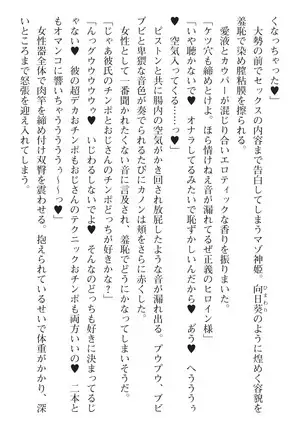 くなっちゃった♥」
　大勢の前でセックスの内容まで告白してしまうマゾ神姫。向日葵のように煌めく容貌を
ひまわり
羞恥で染め膣粘膜を擦られる。
　愛液とカウパーが混じり合いエロティックな香りを振りまいた。
「ケツ穴も締めとけよ、ほら情けねえ音が漏れてるぜ正義のヒロイン様」
「いや聴かないで♥　オナラしてるみたいで恥ずかしいんだから♥　あう♥　へうううぅ
♥　空気入ってくる……っ♥」
　ピストンと共に腸内の空気がかき回され放屁したような音が漏れ出る。プウプウ、ブビ
ブビと卑猥な音色が奏でられるたびにカノンは頬をさらに赤くした。
　女性として一番聞かれたくない音に言及され、羞恥でどうにかなってしまいそうだ。
「じゃあ彼氏のチンポとおじさんのチンポどっちが好きかな？」
「んっグウウウウゥ♥　いじわるしないでよ♥　そんなのどっちも好きに決まってるじ
ゃない♥　彼の超デカおチンポもおじさんのテクニックおチンポも両方いいの♥　二本と
もオマンコに響いちゃうううぅぅ～～っ♥」
　女性器全体で肉竿を締め付け双臀を震わせる。抱えられているせいで体重がかかり、深
いところまで怒張を迎え入れてしまう。